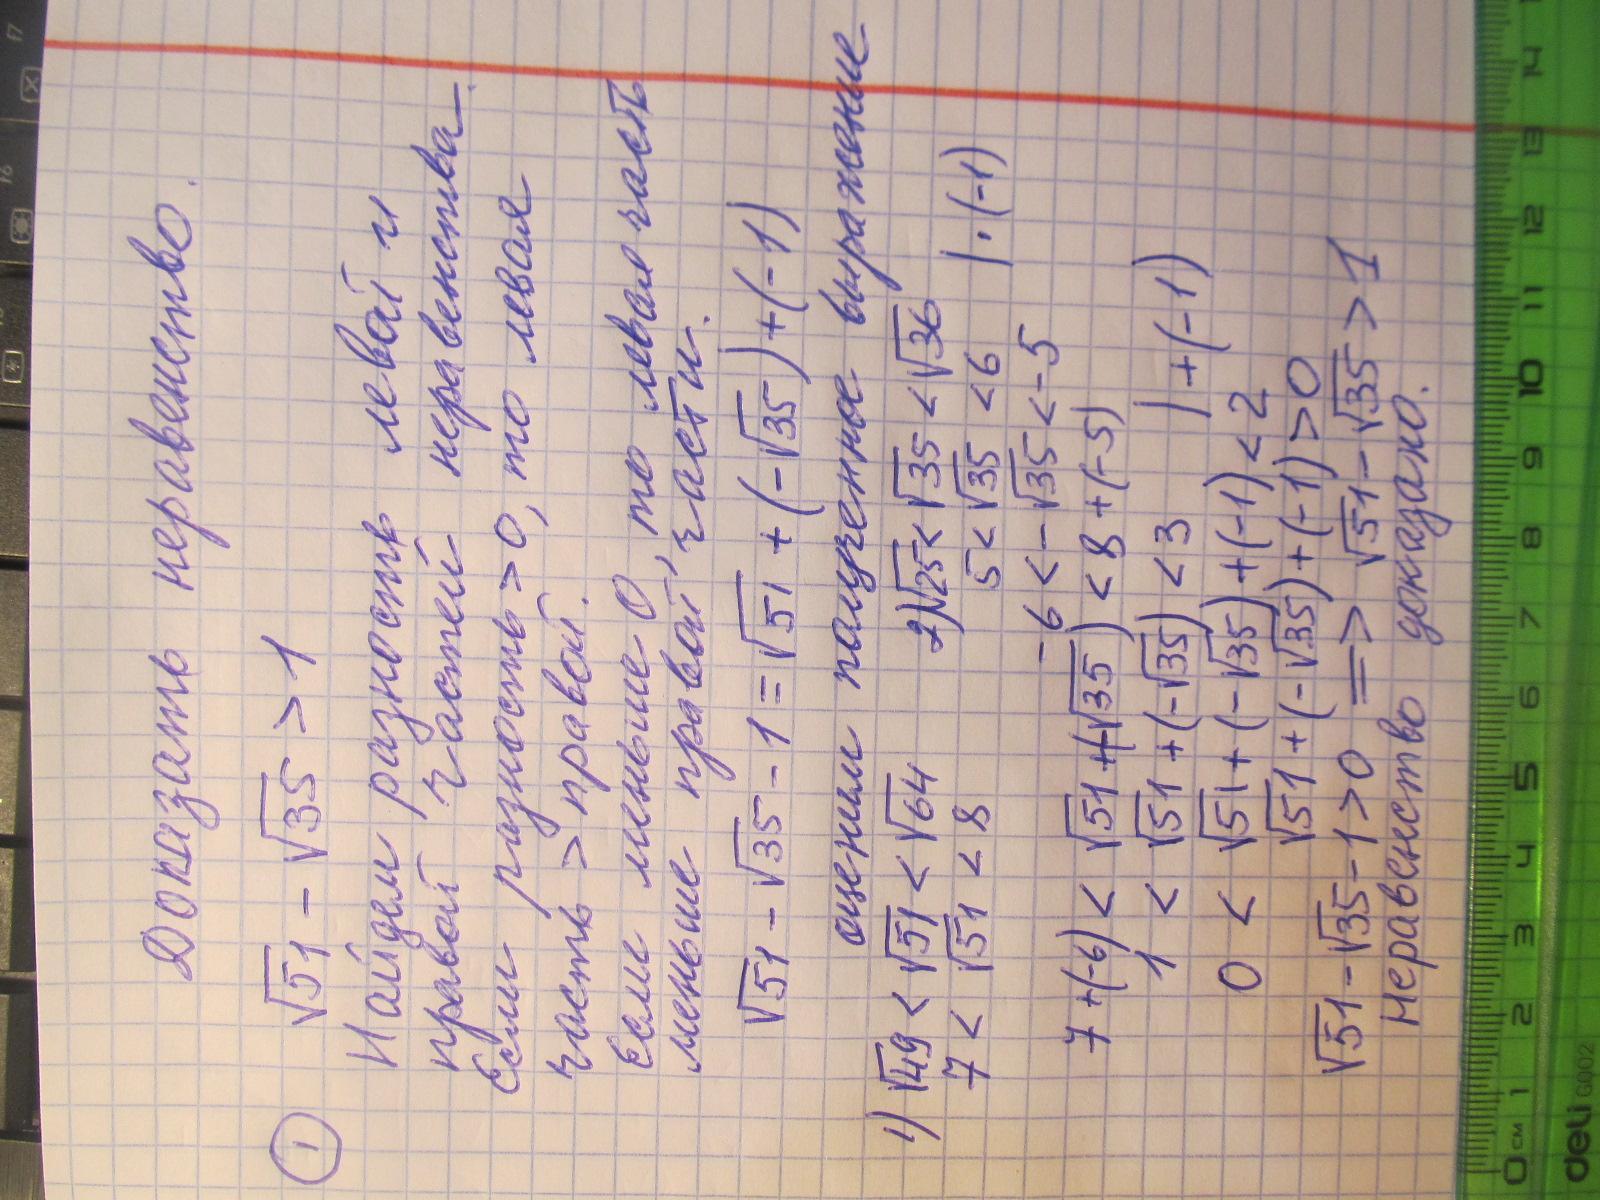 Доказать неравенство.
① √51 - √35 > 1
Найдем разность левой и
правой частей неравенства.
Если разность > 0, то левая
часть > правой.
Если меньше 0, то левая часть
меньше правой части.
√51 - √35 - 1 = √51 + (-√35) + (-1)
оценим полученное выражение
1) √49 < √51 < √64 2) √25 < √35 < √36
7 < √51 < 8 5 < √35 < 6 | · (-1)
-6 < -√35 < -5
7 + (-6) < √51 + (-√35) < 8 + (-5)
1 < √51 + (-√35) < 3 | + (-1)
0 < √51 + (-√35) + (-1) < 2
√51 + (-√35) + (-1) > 0
√51 - √35 - 1 > 0 => √51 - √35 > 1
Неравенство доказано.
0 см 1 2 3 4 5 6 7 8 9 10 11 12 13 14
deli 6002
f7
f6